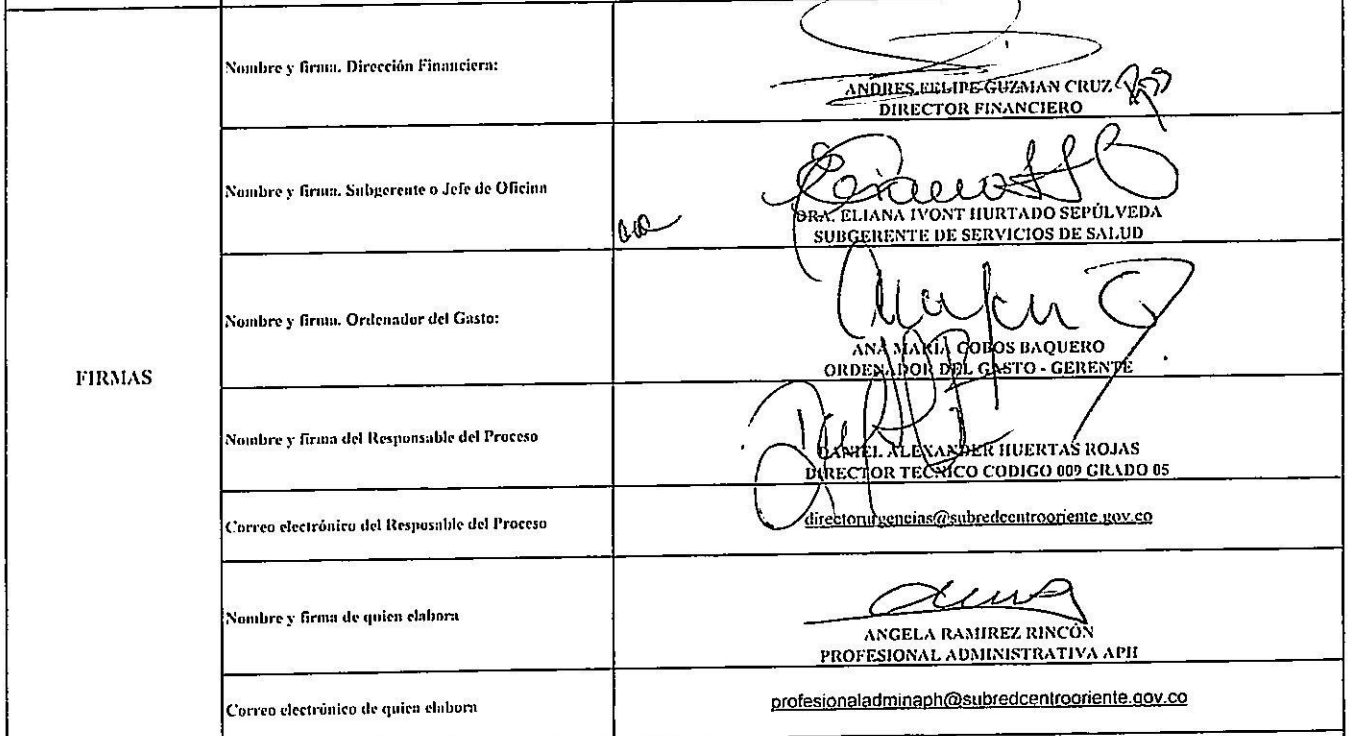 FIRMAS
Nombre y firma. Dirección Financiera:
ANDRES FELIPE GUZMAN CRUZ
DIRECTOR FINANCIERO
Nombre y firma. Subgerente o Jefe de Oficina
DRA. ELIANA IVONT HURTADO SEPÚLVEDA
SUBGERENTE DE SERVICIOS DE SALUD
Nombre y firma. Ordenador del Gasto:
ANA MARÍA COBOS BAQUERO
ORDENADOR DEL GASTO - GERENTE
Nombre y firma del Responsable del Proceso
DANIEL ALEXANDER HUERTAS ROJAS
DIRECTOR TECNICO CODIGO 009 GRADO 05
Correo electrónico del Resposable del Proceso
directorurgencias@subredcentrooriente.gov.co
Nombre y firma de quien elabora
ANGELA RAMIREZ RINCÓN
PROFESIONAL ADMINISTRATIVA APH
Correo electrónico de quien elabora
profesionaladminaph@subredcentrooriente.gov.co